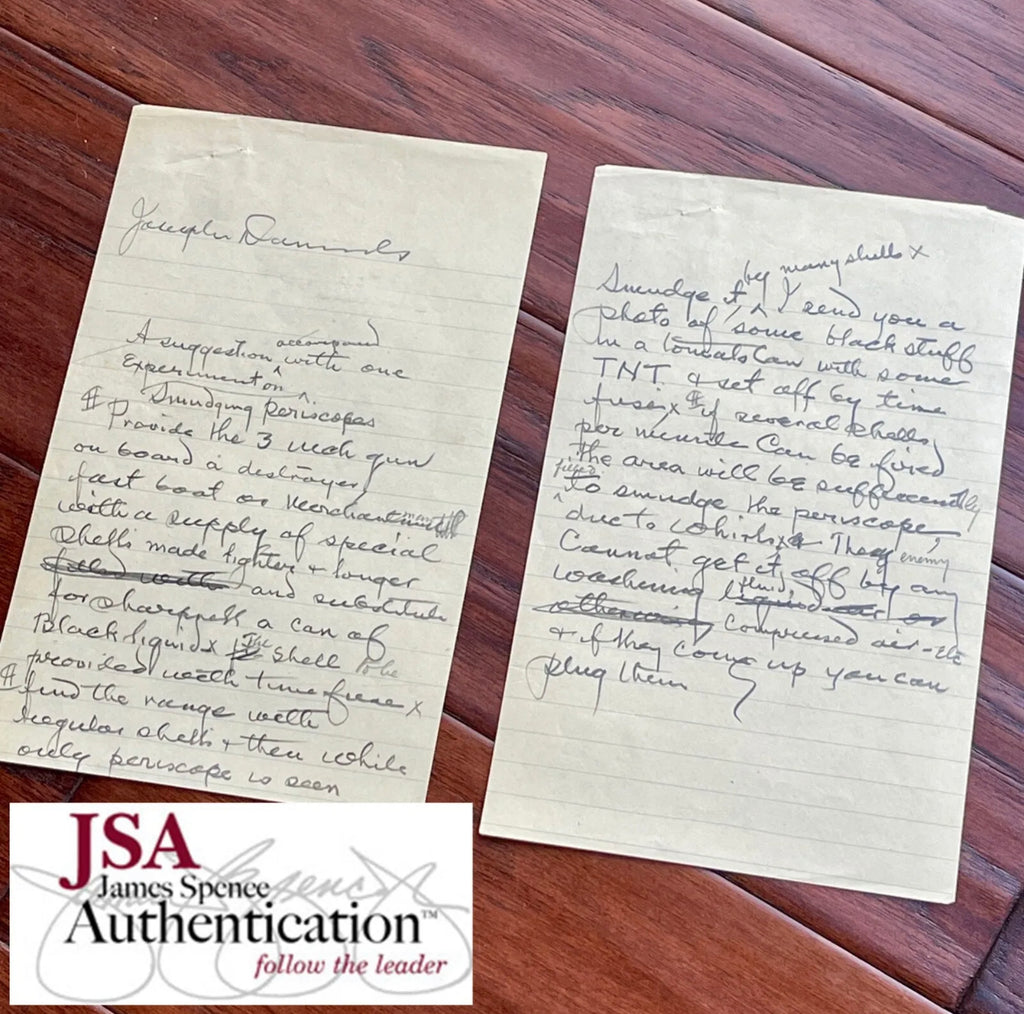 Josephus Daniels
accompand
A suggestion ^ with one
Experiment on
Smudging periscopes
Provide the 3 inch gun
on board a destroyer,
fast boat or Merchant
with a supply of special
shells made lighter & longer
filled with and substitute
for sharpnell a can of
Black liquid x The shell to be
provided with time fuse x
find the range with
regular shells & then while
only periscope is seen
by many shells x
Smudge it ^ I send you a
photo of some black stuff
in a tomato can with some
TNT & set off by time
fuse x if several shells
per minute can be fired
the area will be sufficiently
filled
^ to smudge the periscope,
due to whirls x They enemy
Cannot get it off by any
washening fluid, or
Compressed air -
& if they come up you can
plug them
JSA
James Spence
Authentication™
follow the leader